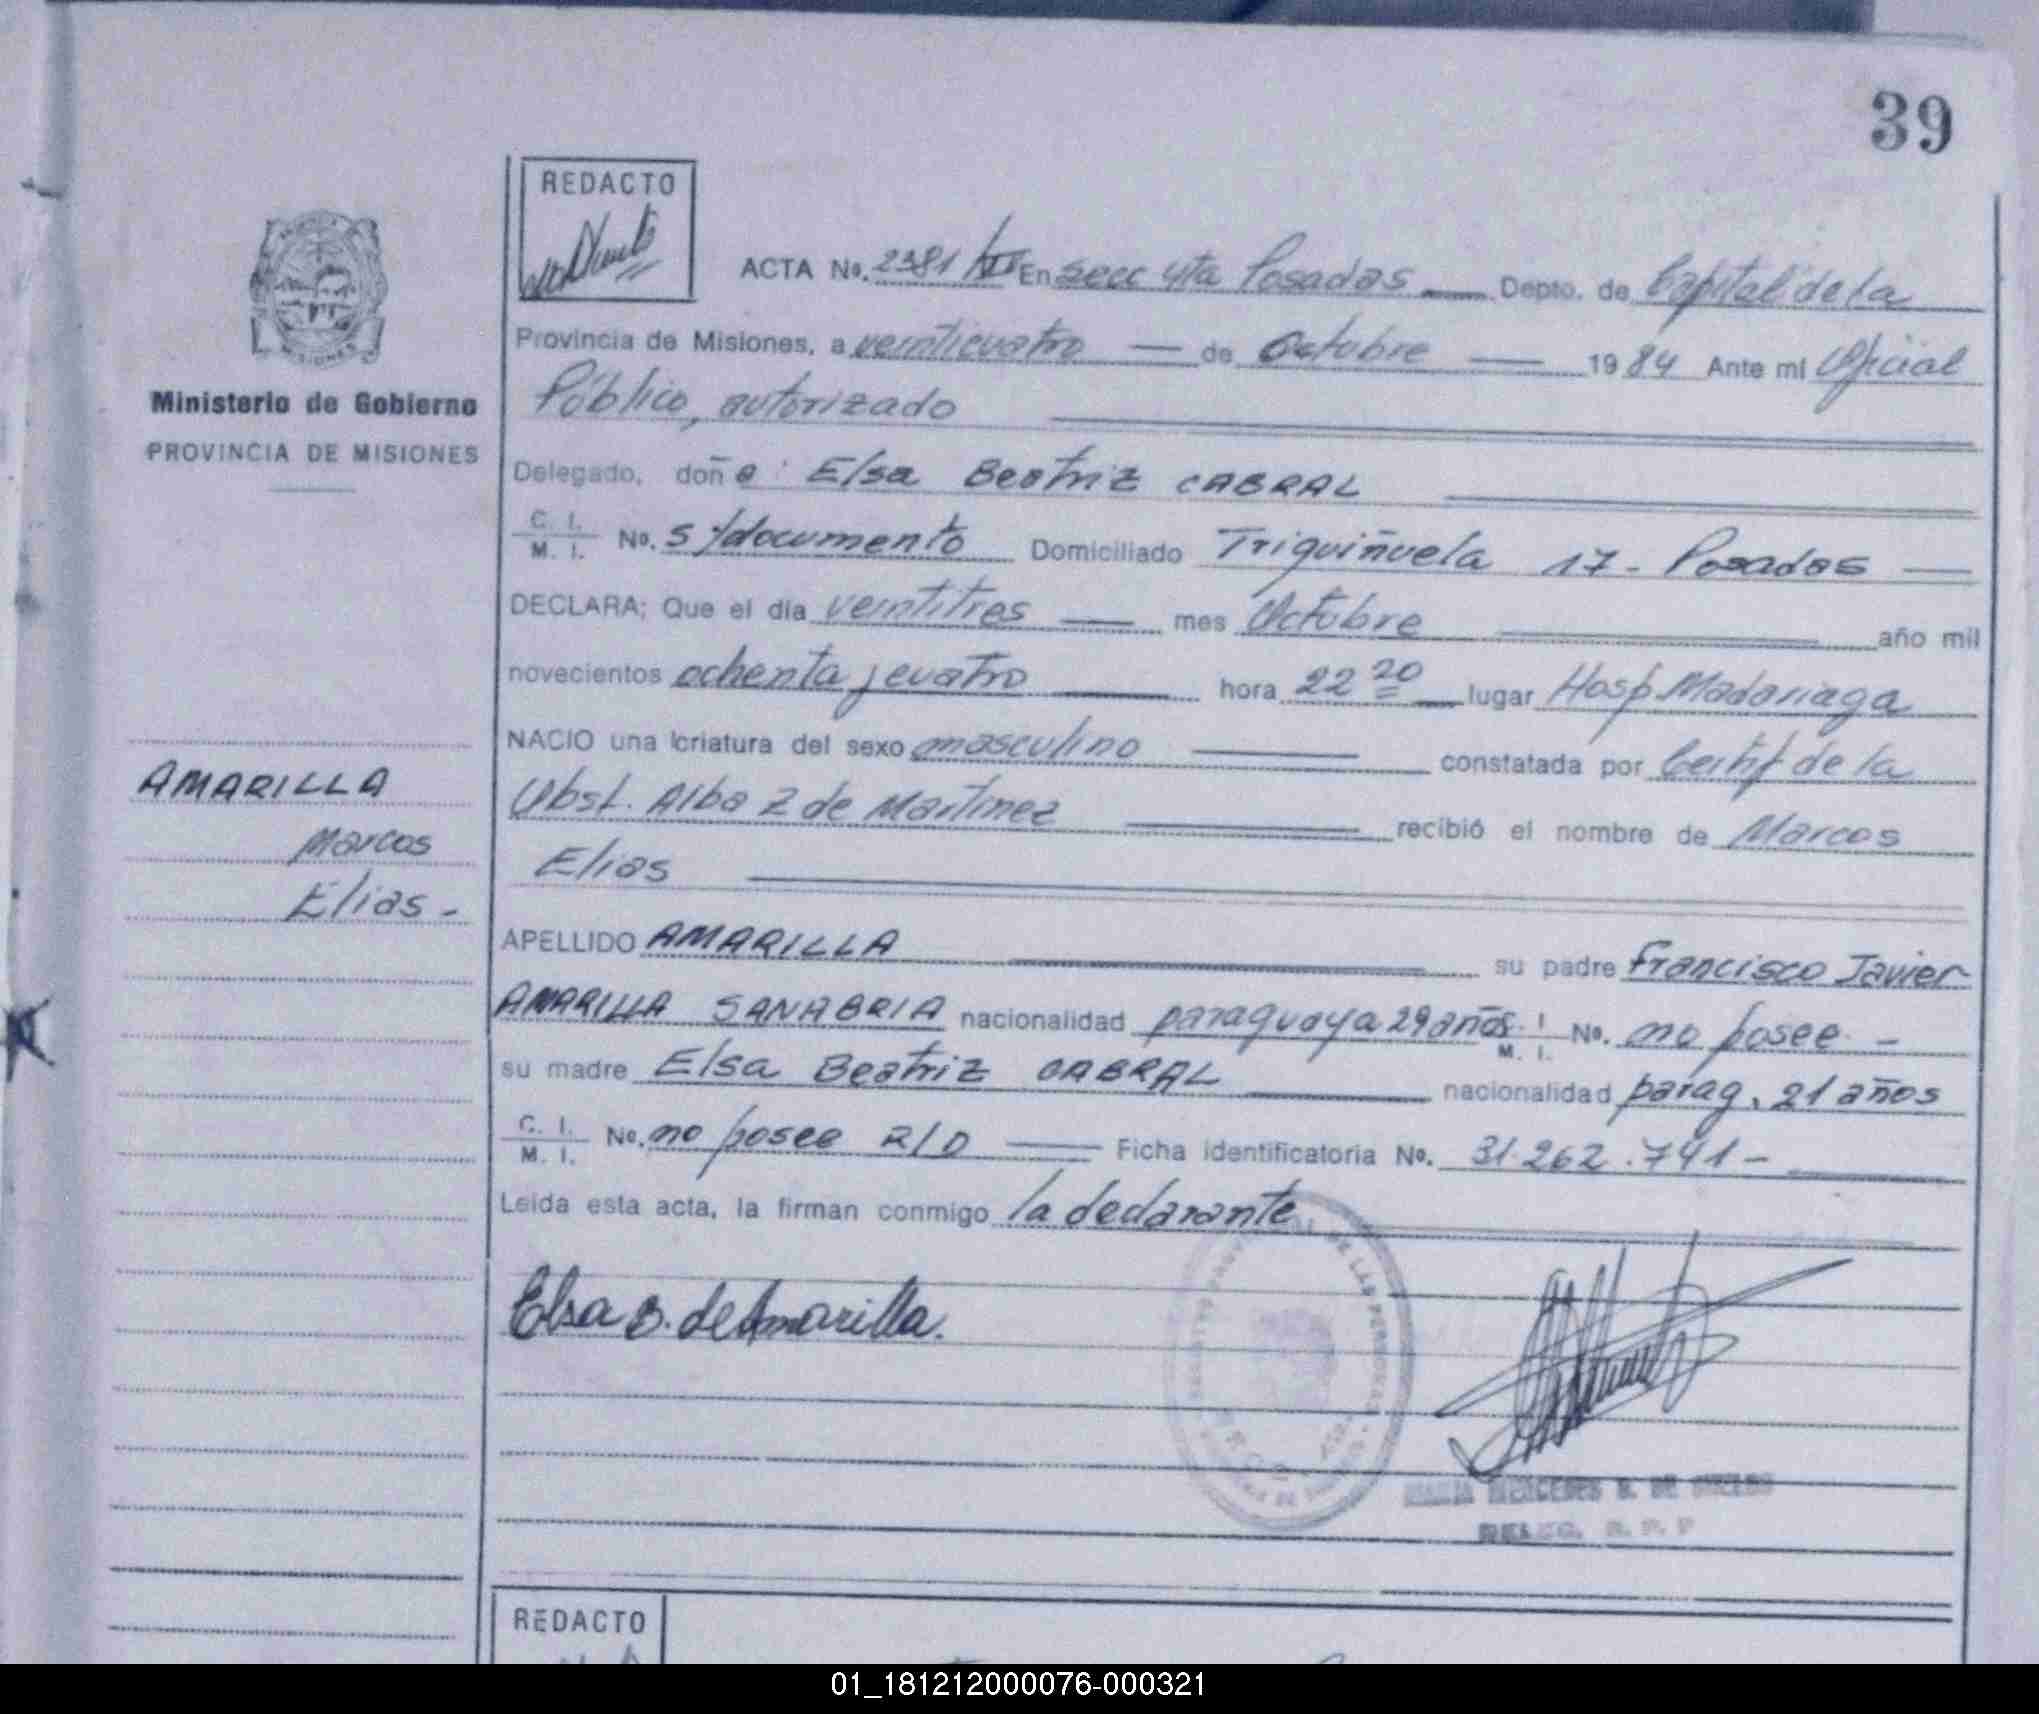 39
REDACTO
ACTA No. 2381 / III En Secc 4ta Posadas Depto. de Capital de la
Provincia de Misiones, a veinticuatro de Octubre 1984 Ante mi Oficial
Público, autorizado
MISIONES
Ministerio de Gobierno
PROVINCIA DE MISIONES
Delegado, doña: Elsa Beatriz CABRAL
C. I.
M. I. No. s/documento Domiciliado Triquiñuela 17 - Posadas
DECLARA; Que el día veintitres mes Octubre año mil
novecientos ochenta y cuatro hora 22 20 lugar Hosp. Madariaga
NACIO una criatura del sexo masculino constatada por Certif de la
Obst. Alba Z de Martinez recibió el nombre de Marcos
Elias
AMARILLA
Marcos
Elias -
APELLIDO AMARILLA su padre Francisco Javier
AMARILLA SANABRIA nacionalidad paraguaya 29 años. I
M. I. No. no posee -
su madre Elsa Beatriz CABRAL nacionalidad parag. 21 años
C. I.
M. I. No. no posee R/D Ficha identificatoria No. 31.262.741 -
Leída esta acta, la firman conmigo la declarante
Elsa B. de Amarilla.
DE LAS PERSONAS
MARIA MERCEDES B. DE
DELEG. R. P. P
REDACTO
01_181212000076-000321